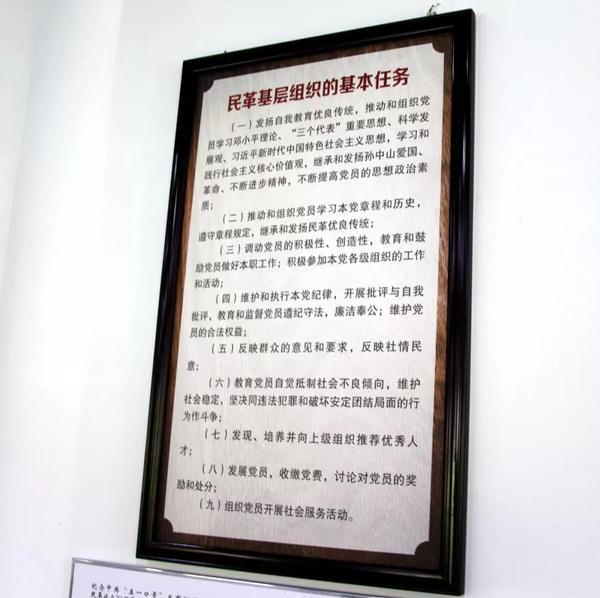 民革基层组织的基本任务
（一）发扬自我教育优良传统，推动和组织党
员学习邓小平理论、“三个代表”重要思想、科学发
展观、习近平新时代中国特色社会主义思想，学习和
践行社会主义核心价值观，继承和发扬孙中山爱国、
革命、不断进步精神，不断提高党员的思想政治素
质；
（二）推动和组织党员学习本党章程和历史，
遵守章程规定，继承和发扬民革优良传统；
（三）调动党员的积极性、创造性，教育和鼓
励党员做好本职工作；积极参加本党各级组织的工作
和活动；
（四）维护和执行本党纪律，开展批评与自我
批评，教育和监督党员遵纪守法，廉洁奉公；维护党
员的合法权益；
（五）反映群众的意见和要求，反映社情民
意；
（六）教育党员自觉抵制社会不良倾向，维护
社会稳定，坚决同违法犯罪和破坏安定团结局面的行
为作斗争；
（七）发现、培养并向上级组织推荐优秀人
才；
（八）发展党员，收缴党费，讨论对党员的奖
励和处分；
（九）组织党员开展社会服务活动。
纪念中共“五一口号”